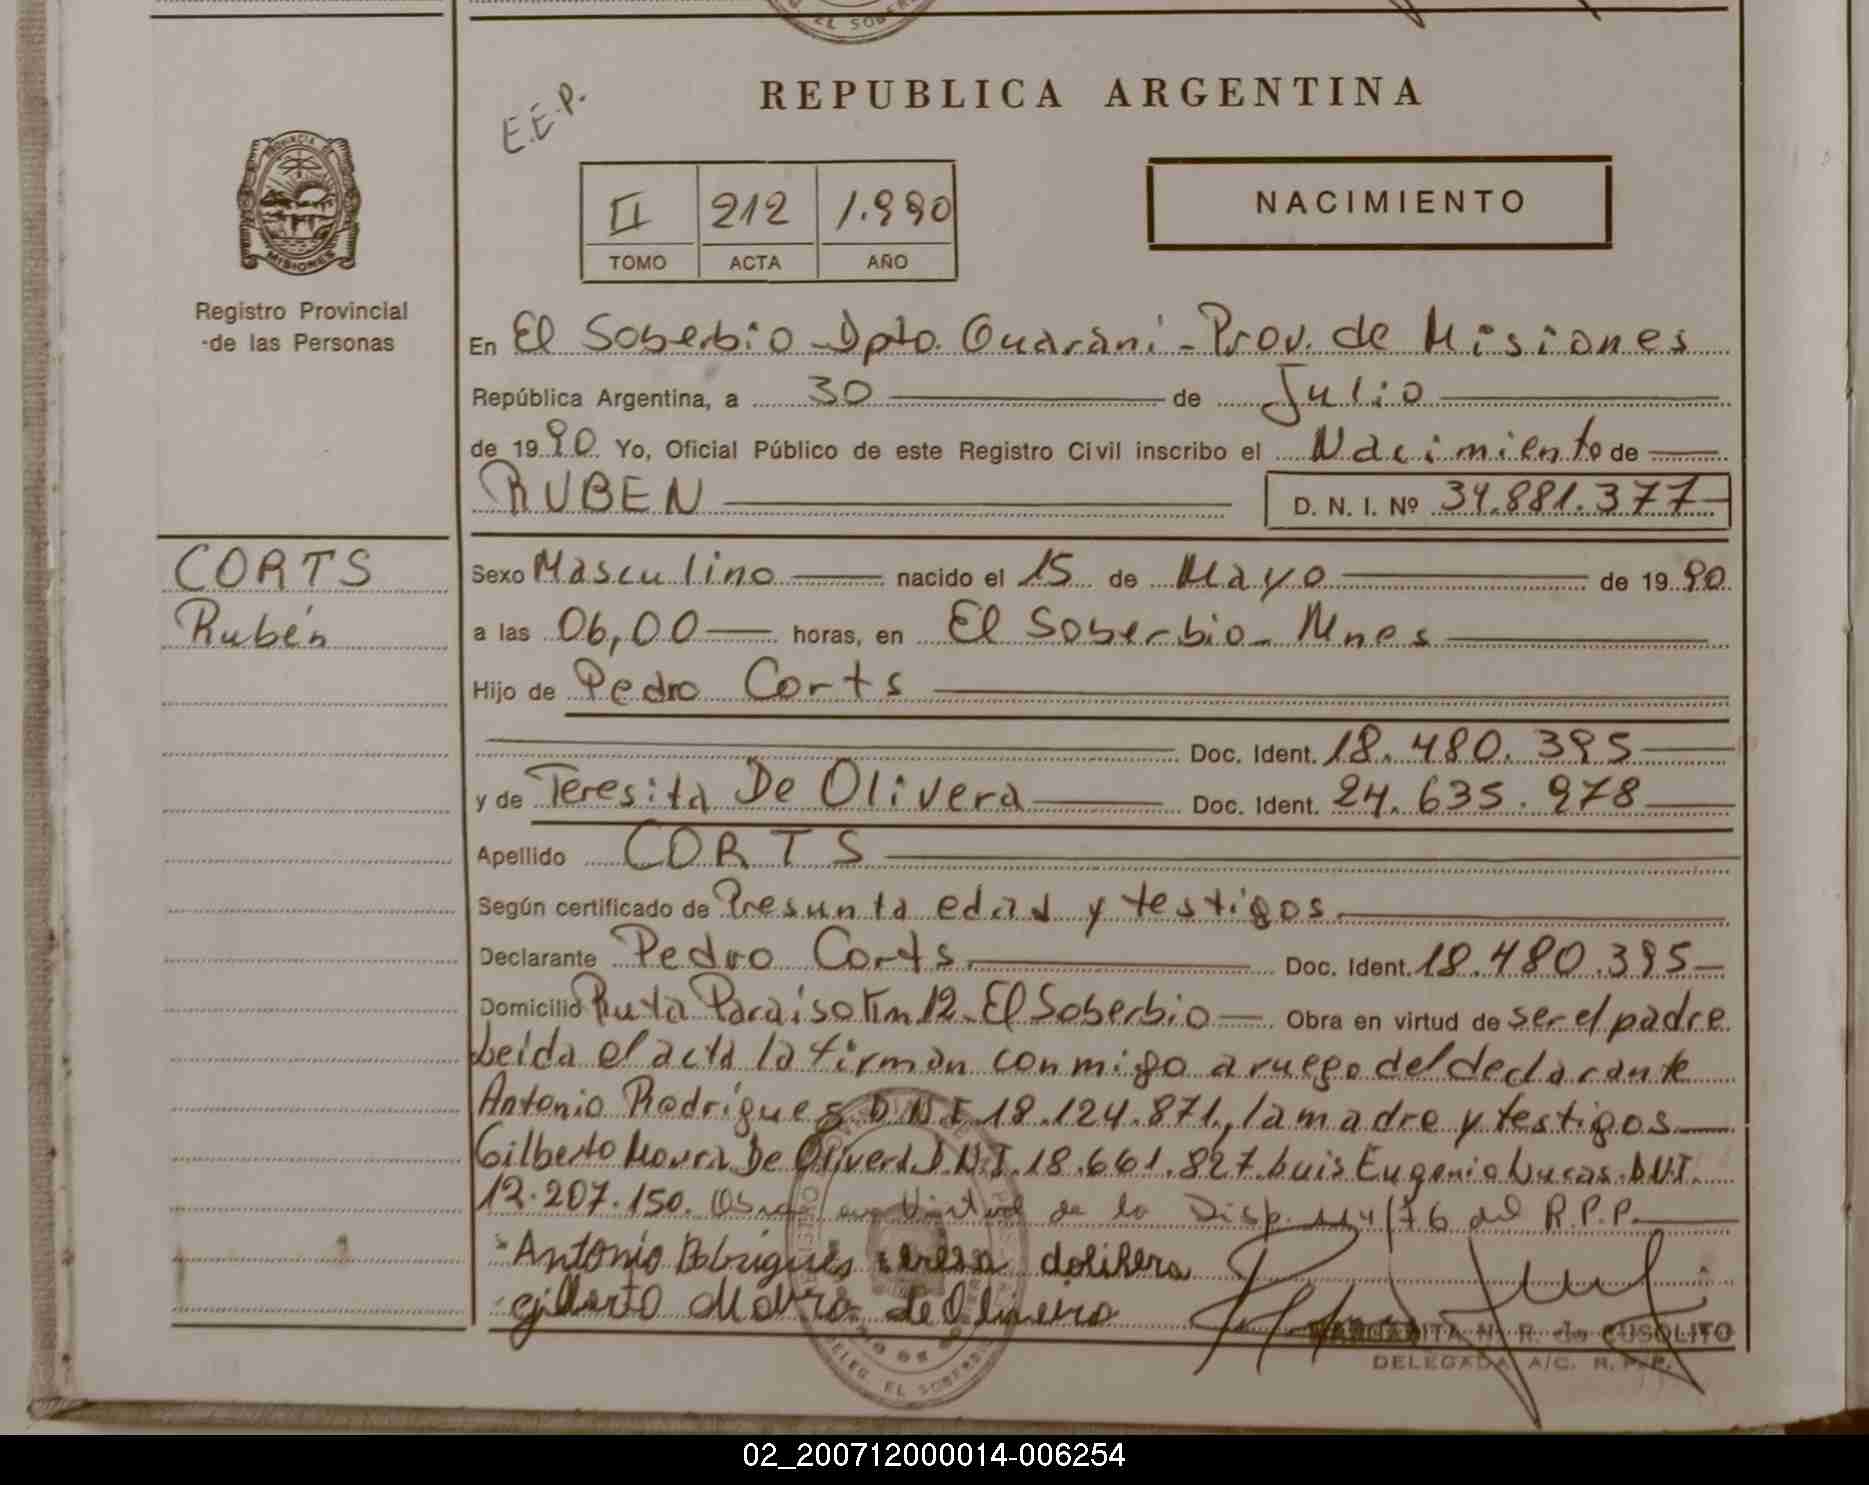 EL SOBERB
REPUBLICA ARGENTINA
E.E.P.
II 212 1.990
TOMO ACTA AÑO
NACIMIENTO
PROVINCIA DE
MISIONES
Registro Provincial
de las Personas
En El Soberbio - Dpto. Guarani - Prov. de Misiones
República Argentina, a 30 de Julio
de 1990 Yo, Oficial Público de este Registro Civil inscribo el Nacimiento de
RUBEN D. N. I. Nº 34.881.377
CORTS
Rubén
Sexo Masculino nacido el 15 de Mayo de 1990
a las 06,00 horas, en El Soberbio - Mnes
Hijo de Pedro Corts
Doc. Ident. 18.480.395
y de Teresita De Olivera Doc. Ident. 24.635.978
Apellido CORTS
Según certificado de Presunta edad y testigos
Declarante Pedro Corts Doc. Ident. 18.480.395
Domicilio Ruta Paraiso Km 12 - El Soberbio Obra en virtud de ser el padre
Leida el acta la firman conmigo a ruego del declarante
Antonio Rodrigues D.N.I. 18.124.871, la madre y testigos
Gilberto Moura De Olivera D.N.I. 18.661.827 Luis Eugenio Lucas D.N.I.
12.207.150. Obra en Virtud de la Disp. 114/76 del R.P.P.
Antonio Rodrigues teresa dolivera
gilberto Moura de Oliveira
MARGARITA N. R. de CUSOLITO
DELEGADA A/C. R. P. P.
DELEG. EL SOBERBIO
02_200712000014-006254